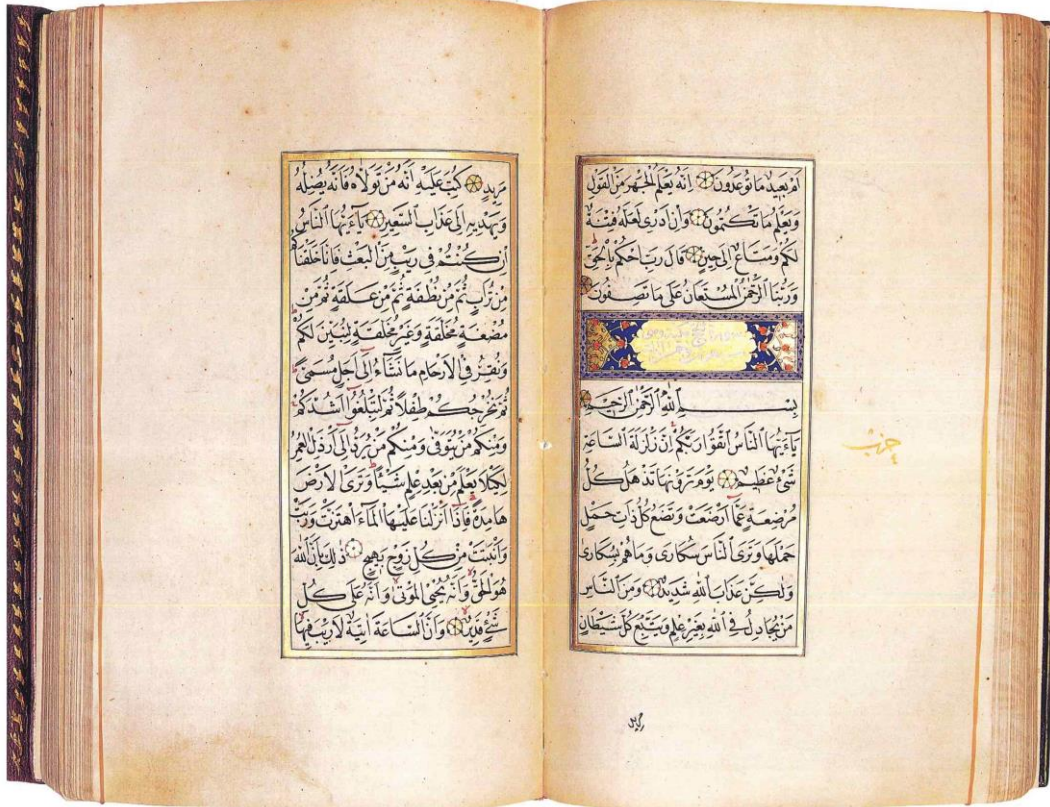 اَمْ بَعِيدٌ مَا تُوعَدُونَ اِنَّهُ يَعْلَمُ الْجَهْرَ مِنَ الْقَوْلِ
وَيَعْلَمُ مَا تَكْتُمُونَ وَاِنْ اَدْرِى لَعَلَّهُ فِتْنَةٌ
لَكُمْ وَمَتَاعٌ اِلٰى حِينٍ قَالَ رَبِّ احْكُمْ بِالْحَقِّ
وَرَبُّنَا الرَّحْمٰنُ الْمُسْتَعَانُ عَلٰى مَا تَصِفُونَ
بِسْــمِ اللّٰهِ الرَّحْمٰنِ الرَّحِيمِ
يَاءَيُّهَا النَّاسُ اتَّقُوا رَبَّكُمْ اِنَّ زَلْزَلَةَ السَّاعَةِ
شَىْءٌ عَظِيمٌ يَوْمَ تَرَوْنَهَا تَذْهَلُ كُلُّ
مُرْضِعَةٍ عَمَّا اَرْضَعَتْ وَتَضَعُ كُلُّ ذَاتِ حَمْلٍ
حَمْلَهَا وَتَرَى النَّاسَ سُكَارٰى وَمَا هُمْ بِسُكَارٰى
وَلٰكِنَّ عَذَابَ اللّٰهِ شَدِيدٌ وَمِنَ النَّاسِ
مَنْ يُجَادِلُ فِى اللّٰهِ بِغَيْرِ عِلْمٍ وَيَتَّبِعُ كُلَّ شَيْطَانٍ
مَرِيدٍ
حزب
مَرِيدٍ كُتِبَ عَلَيْهِ اَنَّهُ مَنْ تَوَلَّاهُ فَاَنَّهُ يُضِلُّهُ
وَيَهْدِيهِ اِلٰى عَذَابِ السَّعِيرِ يَاءَيُّهَا النَّاسُ
اِنْ كُنْتُمْ فِى رَيْبٍ مِنَ الْبَعْثِ فَاِنَّا خَلَقْنَاكُمْ
مِنْ تُرَابٍ ثُمَّ مِنْ نُطْفَةٍ ثُمَّ مِنْ عَلَقَةٍ ثُمَّ مِنْ
مُضْغَةٍ مُخَلَّقَةٍ وَغَيْرِ مُخَلَّقَةٍ لِنُبَيِّنَ لَكُمْ
وَنُقِرُّ فِى الْاَرْحَامِ مَا نَشَاءُ اِلٰى اَجَلٍ مُسَمًّى
ثُمَّ نُخْرِجُكُمْ طِفْلًا ثُمَّ لِتَبْلُغُوا اَشُدَّكُمْ
وَمِنْكُمْ مَنْ يُتَوَفّٰى وَمِنْكُمْ مَنْ يُرَدُّ اِلٰى اَرْذَلِ الْعُمُرِ
لِكَيْلَا يَعْلَمَ مِنْ بَعْدِ عِلْمٍ شَيْـًٔا وَتَرَى الْاَرْضَ
هَامِدَةً فَاِذَا اَنْزَلْنَا عَلَيْهَا الْمَاءَ اهْتَزَّتْ وَرَبَتْ
وَاَنْبَتَتْ مِنْ كُلِّ زَوْجٍ بَهِيجٍ ذٰلِكَ بِاَنَّ اللّٰهَ
هُوَ الْحَقُّ وَاَنَّهُ يُحْىِ الْمَوْتٰى وَاَنَّهُ عَلٰى كُلِّ
شَىْءٍ قَدِيرٌ وَاَنَّ السَّاعَةَ اٰتِيَةٌ لَا رَيْبَ فِيهَا